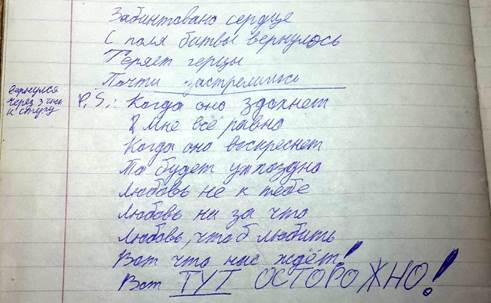 Забинтовано сердце
С поля битвы вернулось
Теряет герцы
Почти застрелилось
вернулся
через 3 дня
к стиху
P.S.: Когда оно здохнет
Мне всё равно
Когда оно воскреснет
То будет уж поздно
Любовь не к тебе
Любовь ни за что
Любовь, что б любить
Вот что нас ждёт!
Вот ТУТ ОСТОРОЖНО!